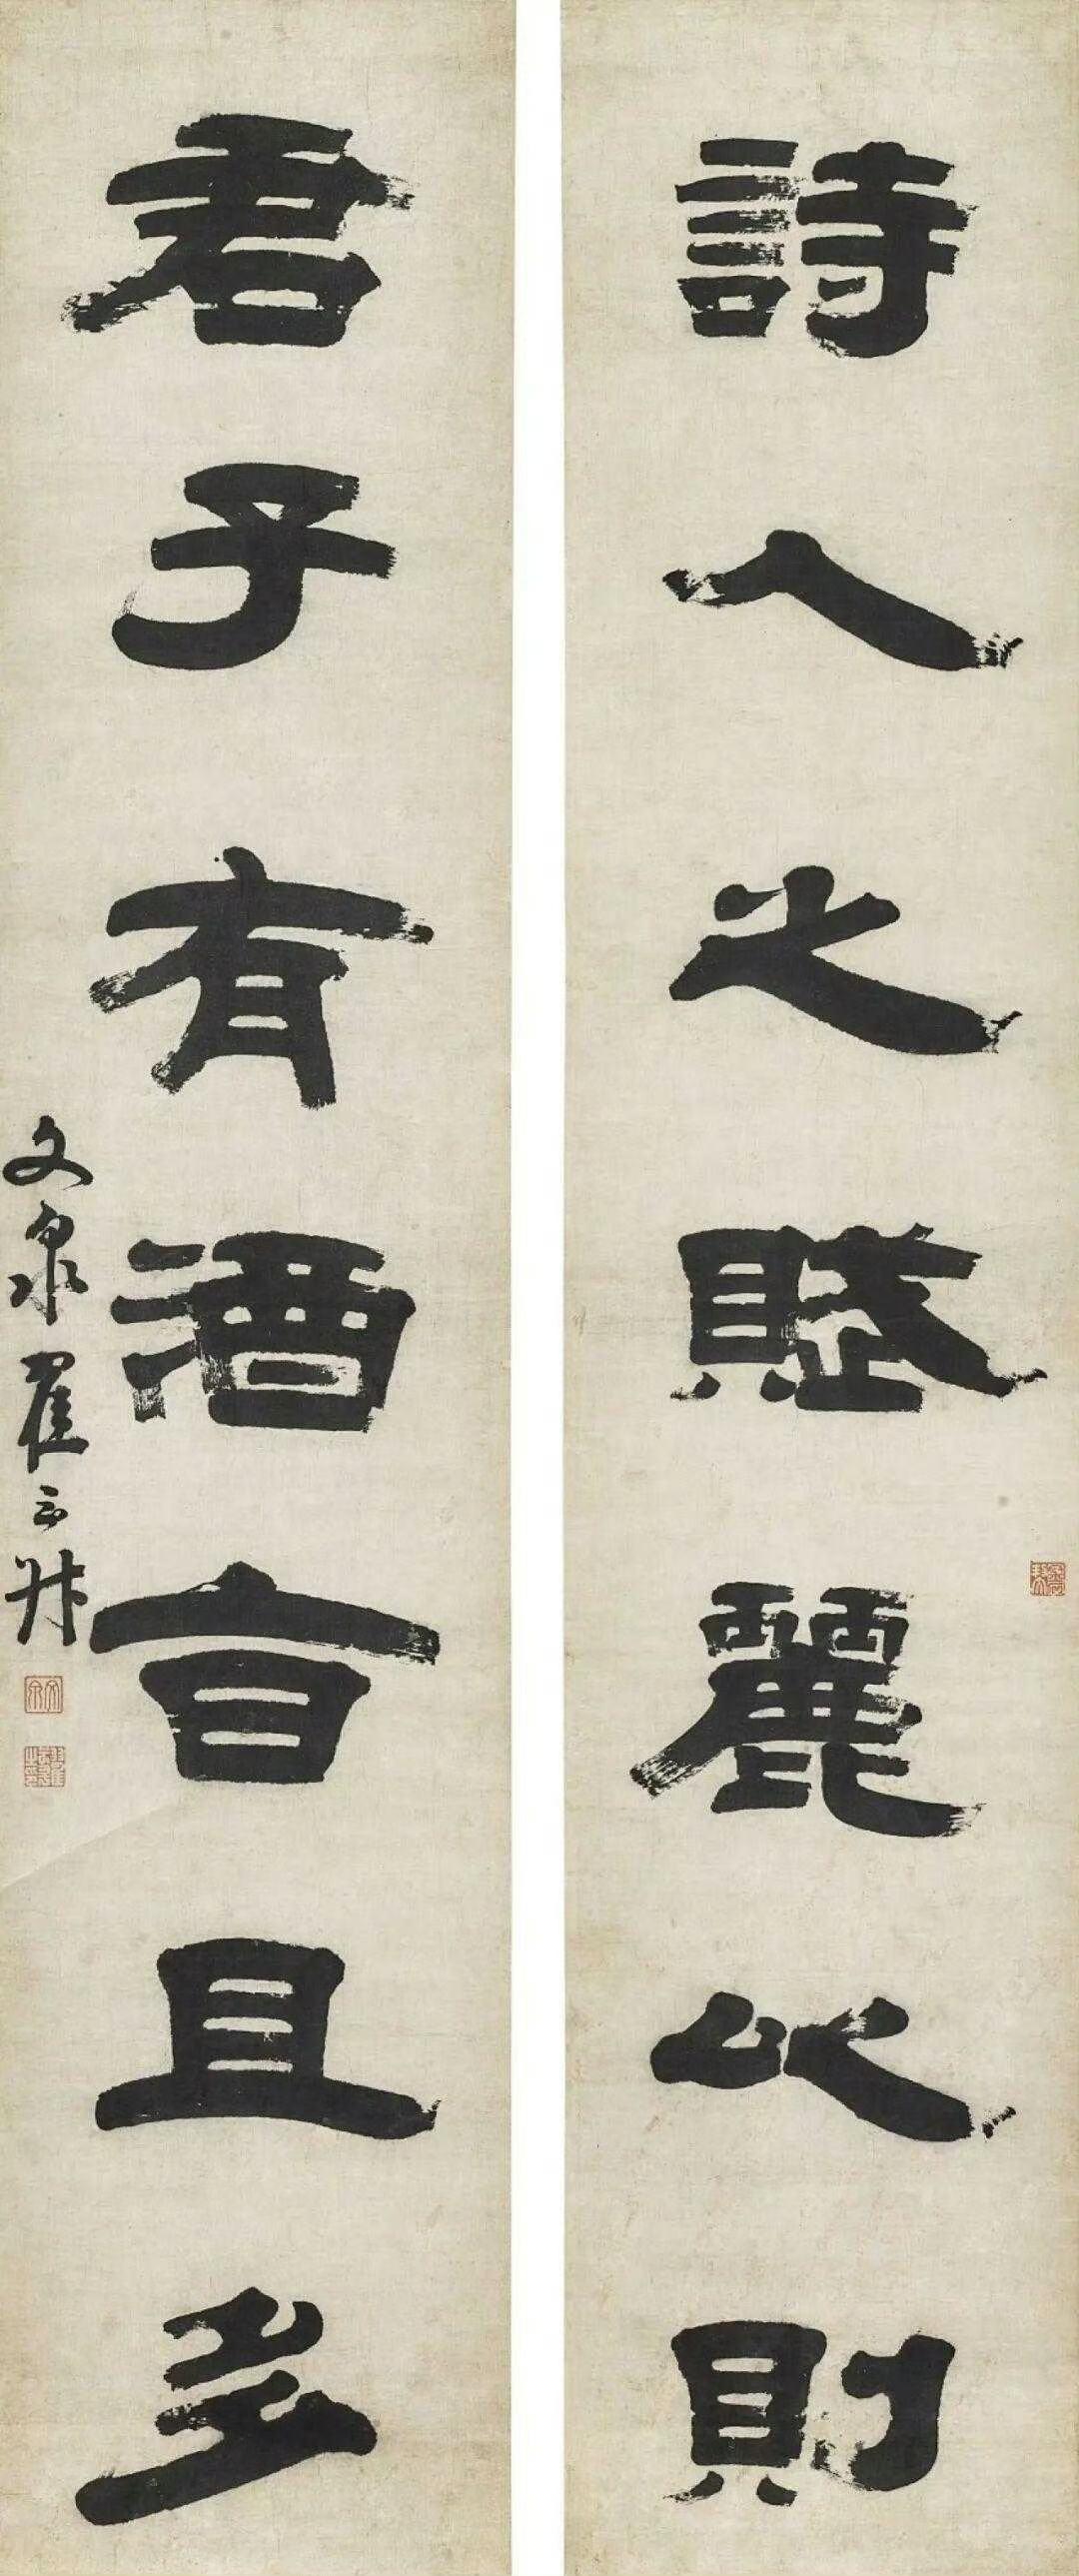 詩人之賦麗以則
君子有酒旨且多
文泉翟云升
文泉